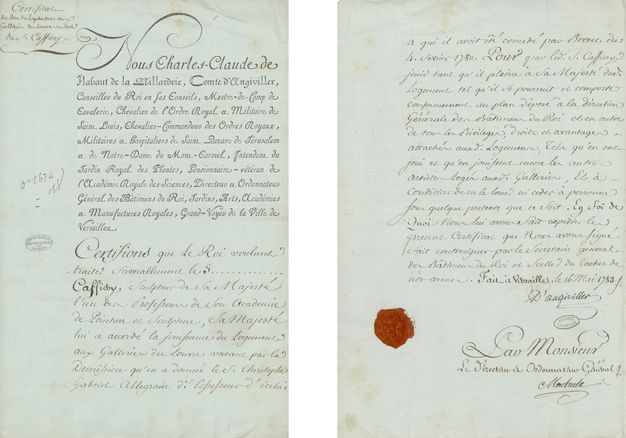 Certificat
de don de logement aux
Galleries du Louvre en faveur
du S. Caffiery
Nous Charles-Claude de
Flahaut de la Billarderie, Comte d'Angiviller,
Conseiller du Roi en ses Conseils, Mestre-de-Camp de
Cavalerie, Chevalier de l'Ordre Royal & Militaire de
Saint Louis, Chevalier-Commandeur des Ordres Royaux,
Militaires & Hospitaliers de Saint Lazare de Jerusalem
& de Notre-Dame du Mont-Carmel, Intendant du
Jardin Royal des Plantes, Pensionnaire-vétéran de
l'Académie Royale des Sciences, Directeur & Ordonnateur
Général des Bâtimens du Roi, Jardins, Arts, Académies
& Manufactures Royales, Grand-Voyer de la Ville de
Versailles
Certifions que le Roi voulant
traiter favorablement le S.
Caffiery, Sculpteur de Sa Majesté
l'un des Professeurs de Son Academie
de Peinture et Sculpture, Sa Majesté
lui a accordé la jouissance du Logement
aux Galleries du Louvre vacant par la
Demission qu'en a donnée le S. Christophe
Gabriel Allegrain
a qui il avoit été concedé par Brevet du
1780. Pour que led. S. Caffiery,
jouir tant qu'il plaira a Sa Majesté dud.
Logement tel qu'il se poursuit et comporte
conformement au plan déposé à la Direction
Générale des Bâtimens du Roi et en outre
de tous les Privileges, droits et avantages
attachés auxd. Logemens, Tels qu'en ont
joui et qu'en jouissent encore les autres
artistes Logés auxd. Galleries, Et à
Condition de ne le louer ni ceder à personne
sous quelque pretexte que ce soit. En Foi de
Quoi Nous lui avons fait expédier le
present Certificat que Nous avons signé
fait contresigner par le Secrétaire général
des Bâtimens du Roi et Scellé du Cachet de
nos armes. Fait à Versailles le 16 Mai
D'angiviller
Par Monsieur
Le Directeur et Ordonnateur Général
Montucla